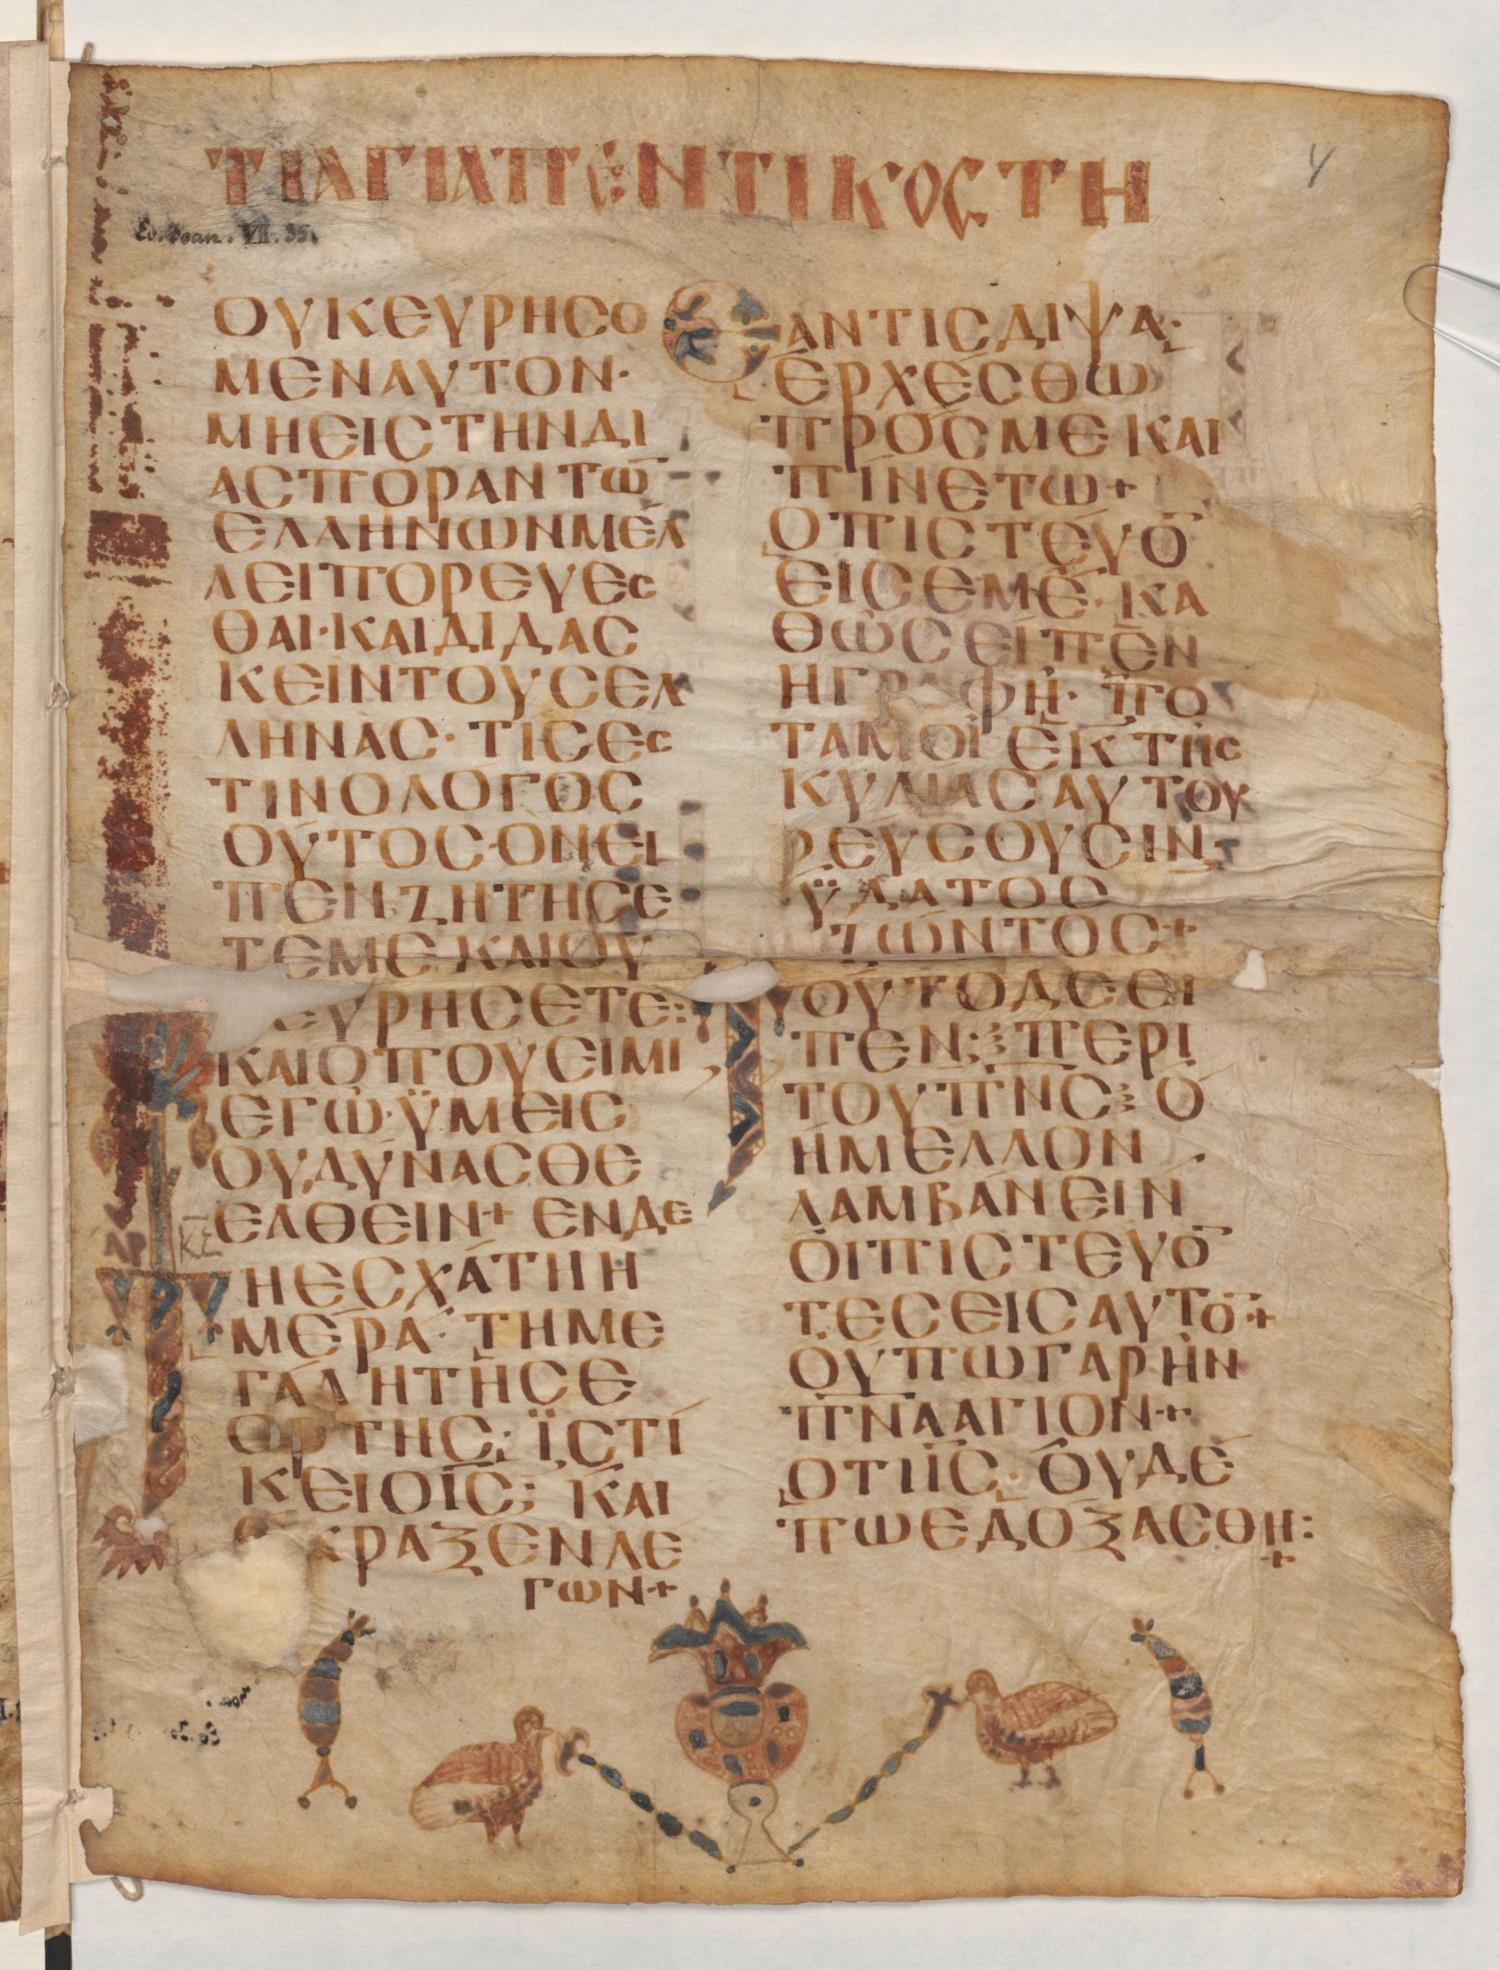 ΤΙΑΓΙΑΠΕΝΤΙΚΟCΤΗ
4
Ev. Joan. VII. 35.
ΟΥΚΕΥΡΗCΟ
ΜΕΝΑΥΤΟΝ·
ΜΗΕΙCΤΗΝΔΙ
ΑCΠΟΡΑΝΤΩ̅
ΕΛΛΗΝΩΝΜΕΛ
ΛΕΙΠΟΡΕΥΕC
ΘΑΙ·ΚΑΙΔΙΔΑC
ΚΕΙΝΤΟΥCΕΛ
ΛΗΝΑC·ΤΙCΕC
ΤΙΝΟΛΟΓΟC
ΟΥΤΟC·ΟΝΕΙ
ΠΕΝ·ΖΗΤΗCΕ
ΤΕΜΕΚΑΙΟΥ
ΕΥΡΗCΕΤΕ:
ΚΑΙΟΠΟΥΕΙΜΙ
ΕΓΩ·ΫΜΕΙC
ΟΥΔΥΝΑCΘΕ
ΕΛΘΕΙΝ+ ΕΝΔΕ
ΚΕ
ΤΗΕCΧΑΤΗΗ
ΜΕΡΑ·ΤΗΜΕ
ΓΑΛΗΤΗCΕ
ΟΡΤΗC; ΪCΤΙ
ΚΕΙΟΙ̅C̅; ΚΑΙ
ΕΚΡΑΞΕΝΛΕ
ΓΩΝ+
ΕΑΝΤΙCΔΙΨΑ·
ΕΡΧΕCΘΩ
ΠΡΟCΜΕΚΑΙ
ΠΙΝΕΤΩ+
ΟΠΙCΤΕΥΟ̅
ΕΙCΕΜΕ·ΚΑ
ΘΩCΕΙΠΕΝ
ΗΓΡΑΦΗ·ΠΟ
ΤΑΜΟΙΕΚΤΗC
ΚΥΛΙΑCΑΥΤΟΥ
ΡΕΥCΟΥCΙΝ
ΫΔΑΤΟC
ΖΩΝΤΟC+
ΤΟΥΤΟΔΕΕΙ
ΠΕΝ: ΠΕΡΙ
ΤΟΥΠ̅Ν̅C̅ Ο
ΗΜΕΛΛΟΝ
ΛΑΜΒΑΝΕΙΝ
ΟΙΠΙCΤΕΥΟ̅
ΤΕCΕΙCΑΥΤΟ̅+
ΟΥΠΩΓΑΡΗΝ
Π̅Ν̅Α̅ΑΓΙΟΝ+
ΟΤΙΙ̅C̅·ΟΥΔΕ
ΠΩΕΔΟΞΑCΘΗ:
+